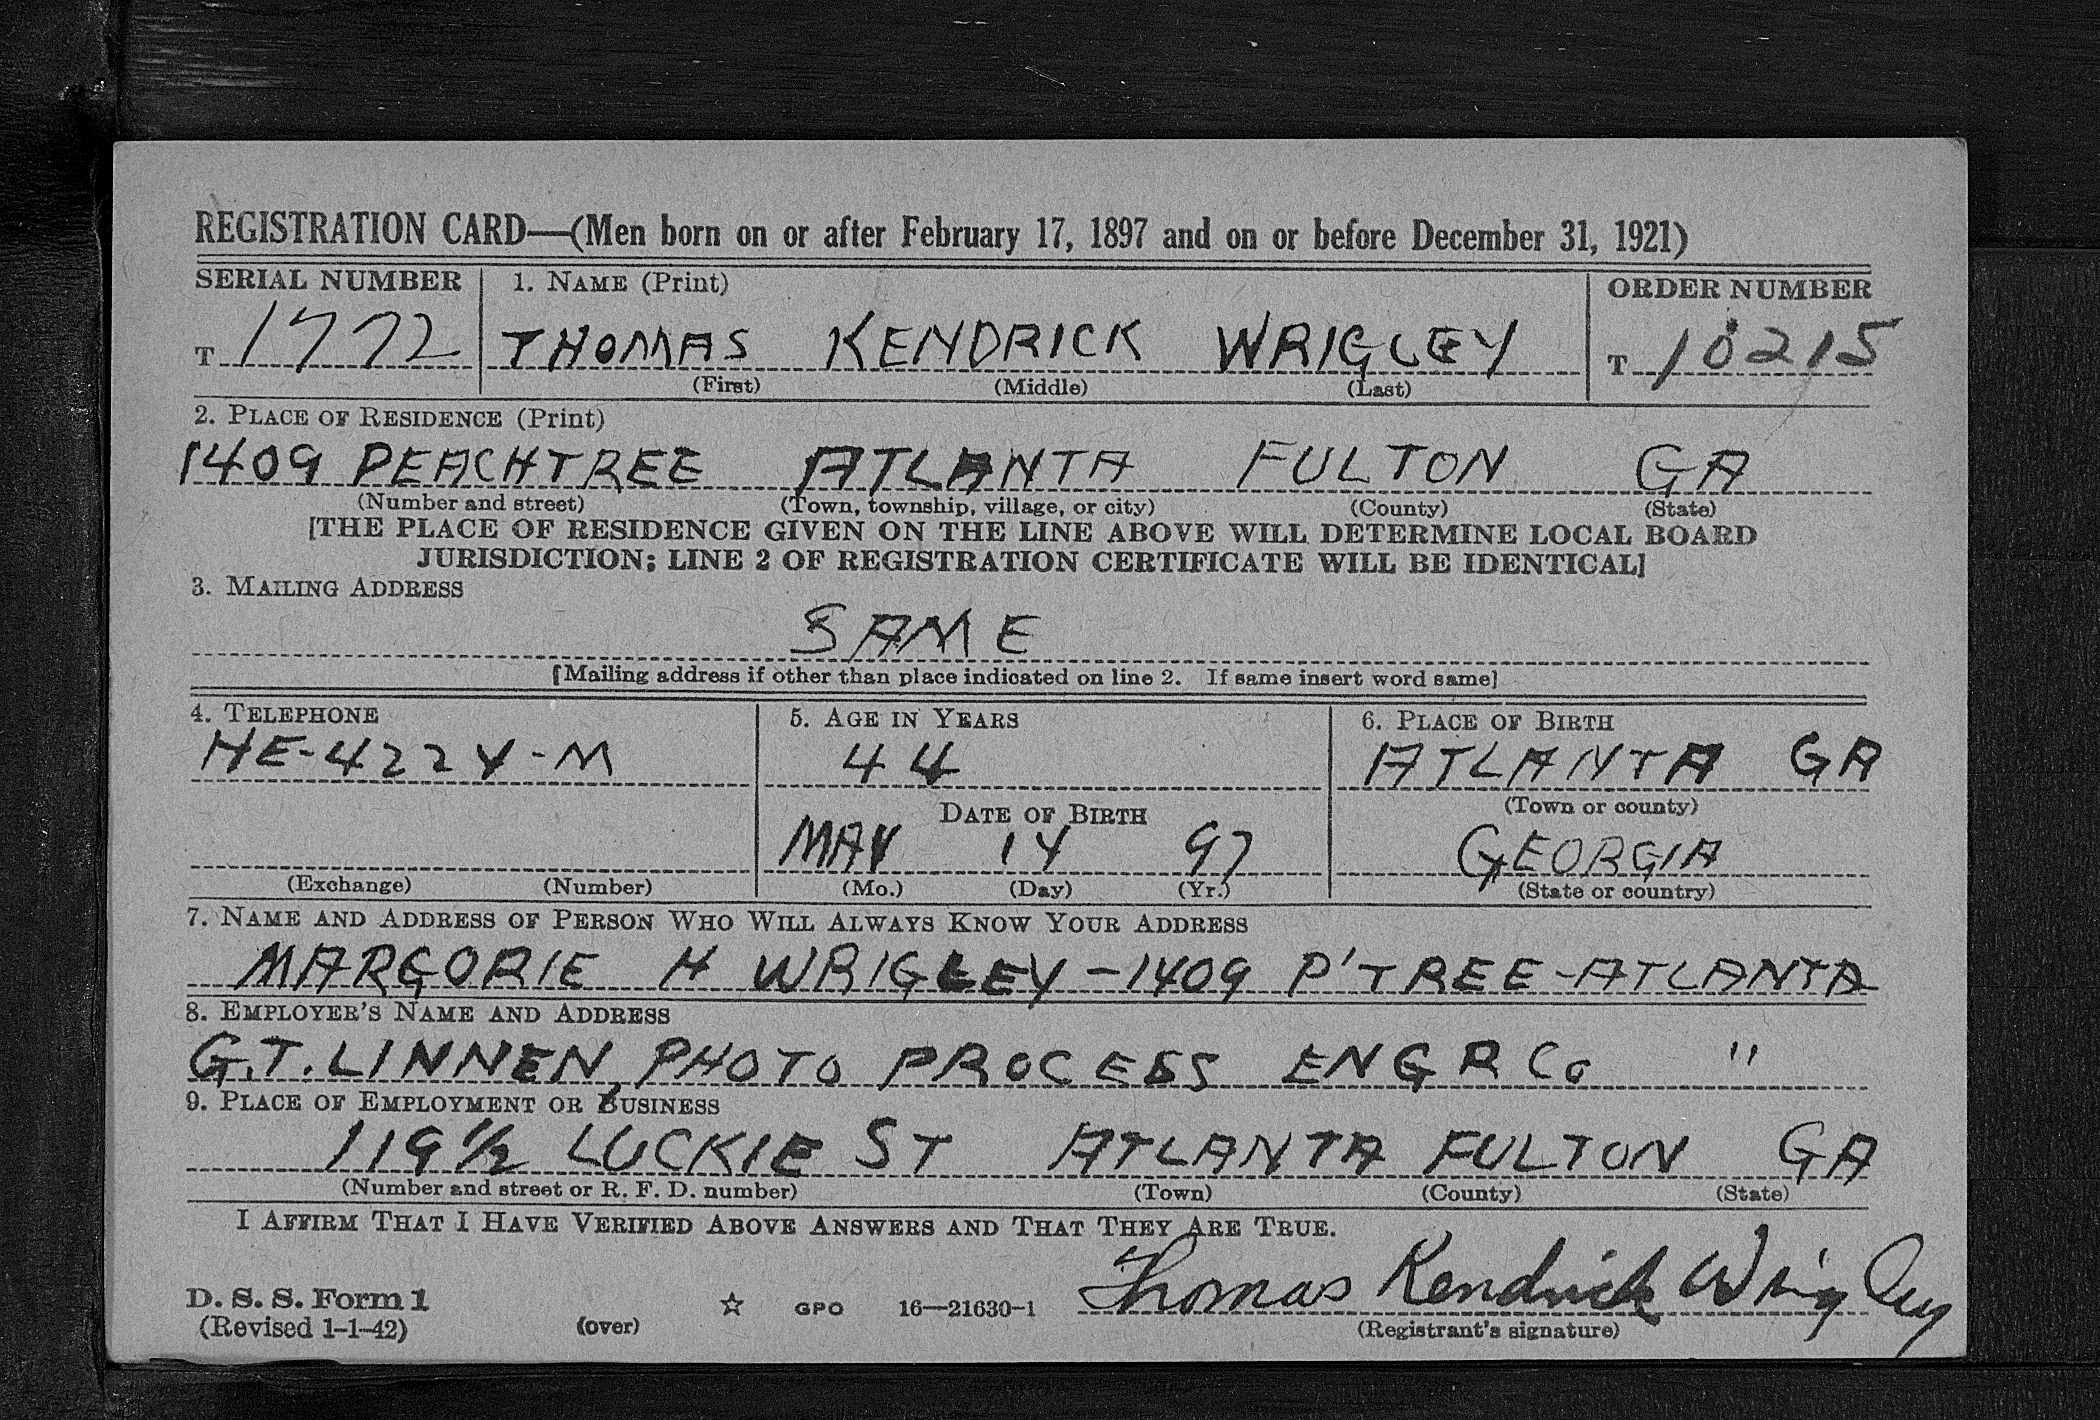 REGISTRATION CARD—(Men born on or after February 17, 1897 and on or before December 31, 1921)
SERIAL NUMBER 1. NAME (Print) ORDER NUMBER
T 1772 THOMAS KENDRICK WRIGLEY T 10215
(First) (Middle) (Last)
2. PLACE OF RESIDENCE (Print)
1409 PEACHTREE ATLANTA FULTON GA
(Number and street) (Town, township, village, or city) (County) (State)
[THE PLACE OF RESIDENCE GIVEN ON THE LINE ABOVE WILL DETERMINE LOCAL BOARD
JURISDICTION; LINE 2 OF REGISTRATION CERTIFICATE WILL BE IDENTICAL]
3. MAILING ADDRESS
SAME
[Mailing address if other than place indicated on line 2. If same insert word same]
4. TELEPHONE 5. AGE IN YEARS 6. PLACE OF BIRTH
HE-4224-M 44 ATLANTA GA
DATE OF BIRTH (Town or county)
MAY 14 97 GEORGIA
(Exchange) (Number) (Mo.) (Day) (Yr.) (State or country)
7. NAME AND ADDRESS OF PERSON WHO WILL ALWAYS KNOW YOUR ADDRESS
MARGORIE H WRIGLEY-1409 P'TREE-ATLANTA
8. EMPLOYER'S NAME AND ADDRESS
G.T. LINNEN, PHOTO PROCESS ENGR Co "
9. PLACE OF EMPLOYMENT OR BUSINESS
119 1/2 LUCKIE ST ATLANTA FULTON GA
(Number and street or R. F. D. number) (Town) (County) (State)
I AFFIRM THAT I HAVE VERIFIED ABOVE ANSWERS AND THAT THEY ARE TRUE.
Thomas Kendrick Wrigley
D. S. S. Form 1 ☆ GPO 16—21630-1
(Revised 1-1-42) (over) (Registrant's signature)